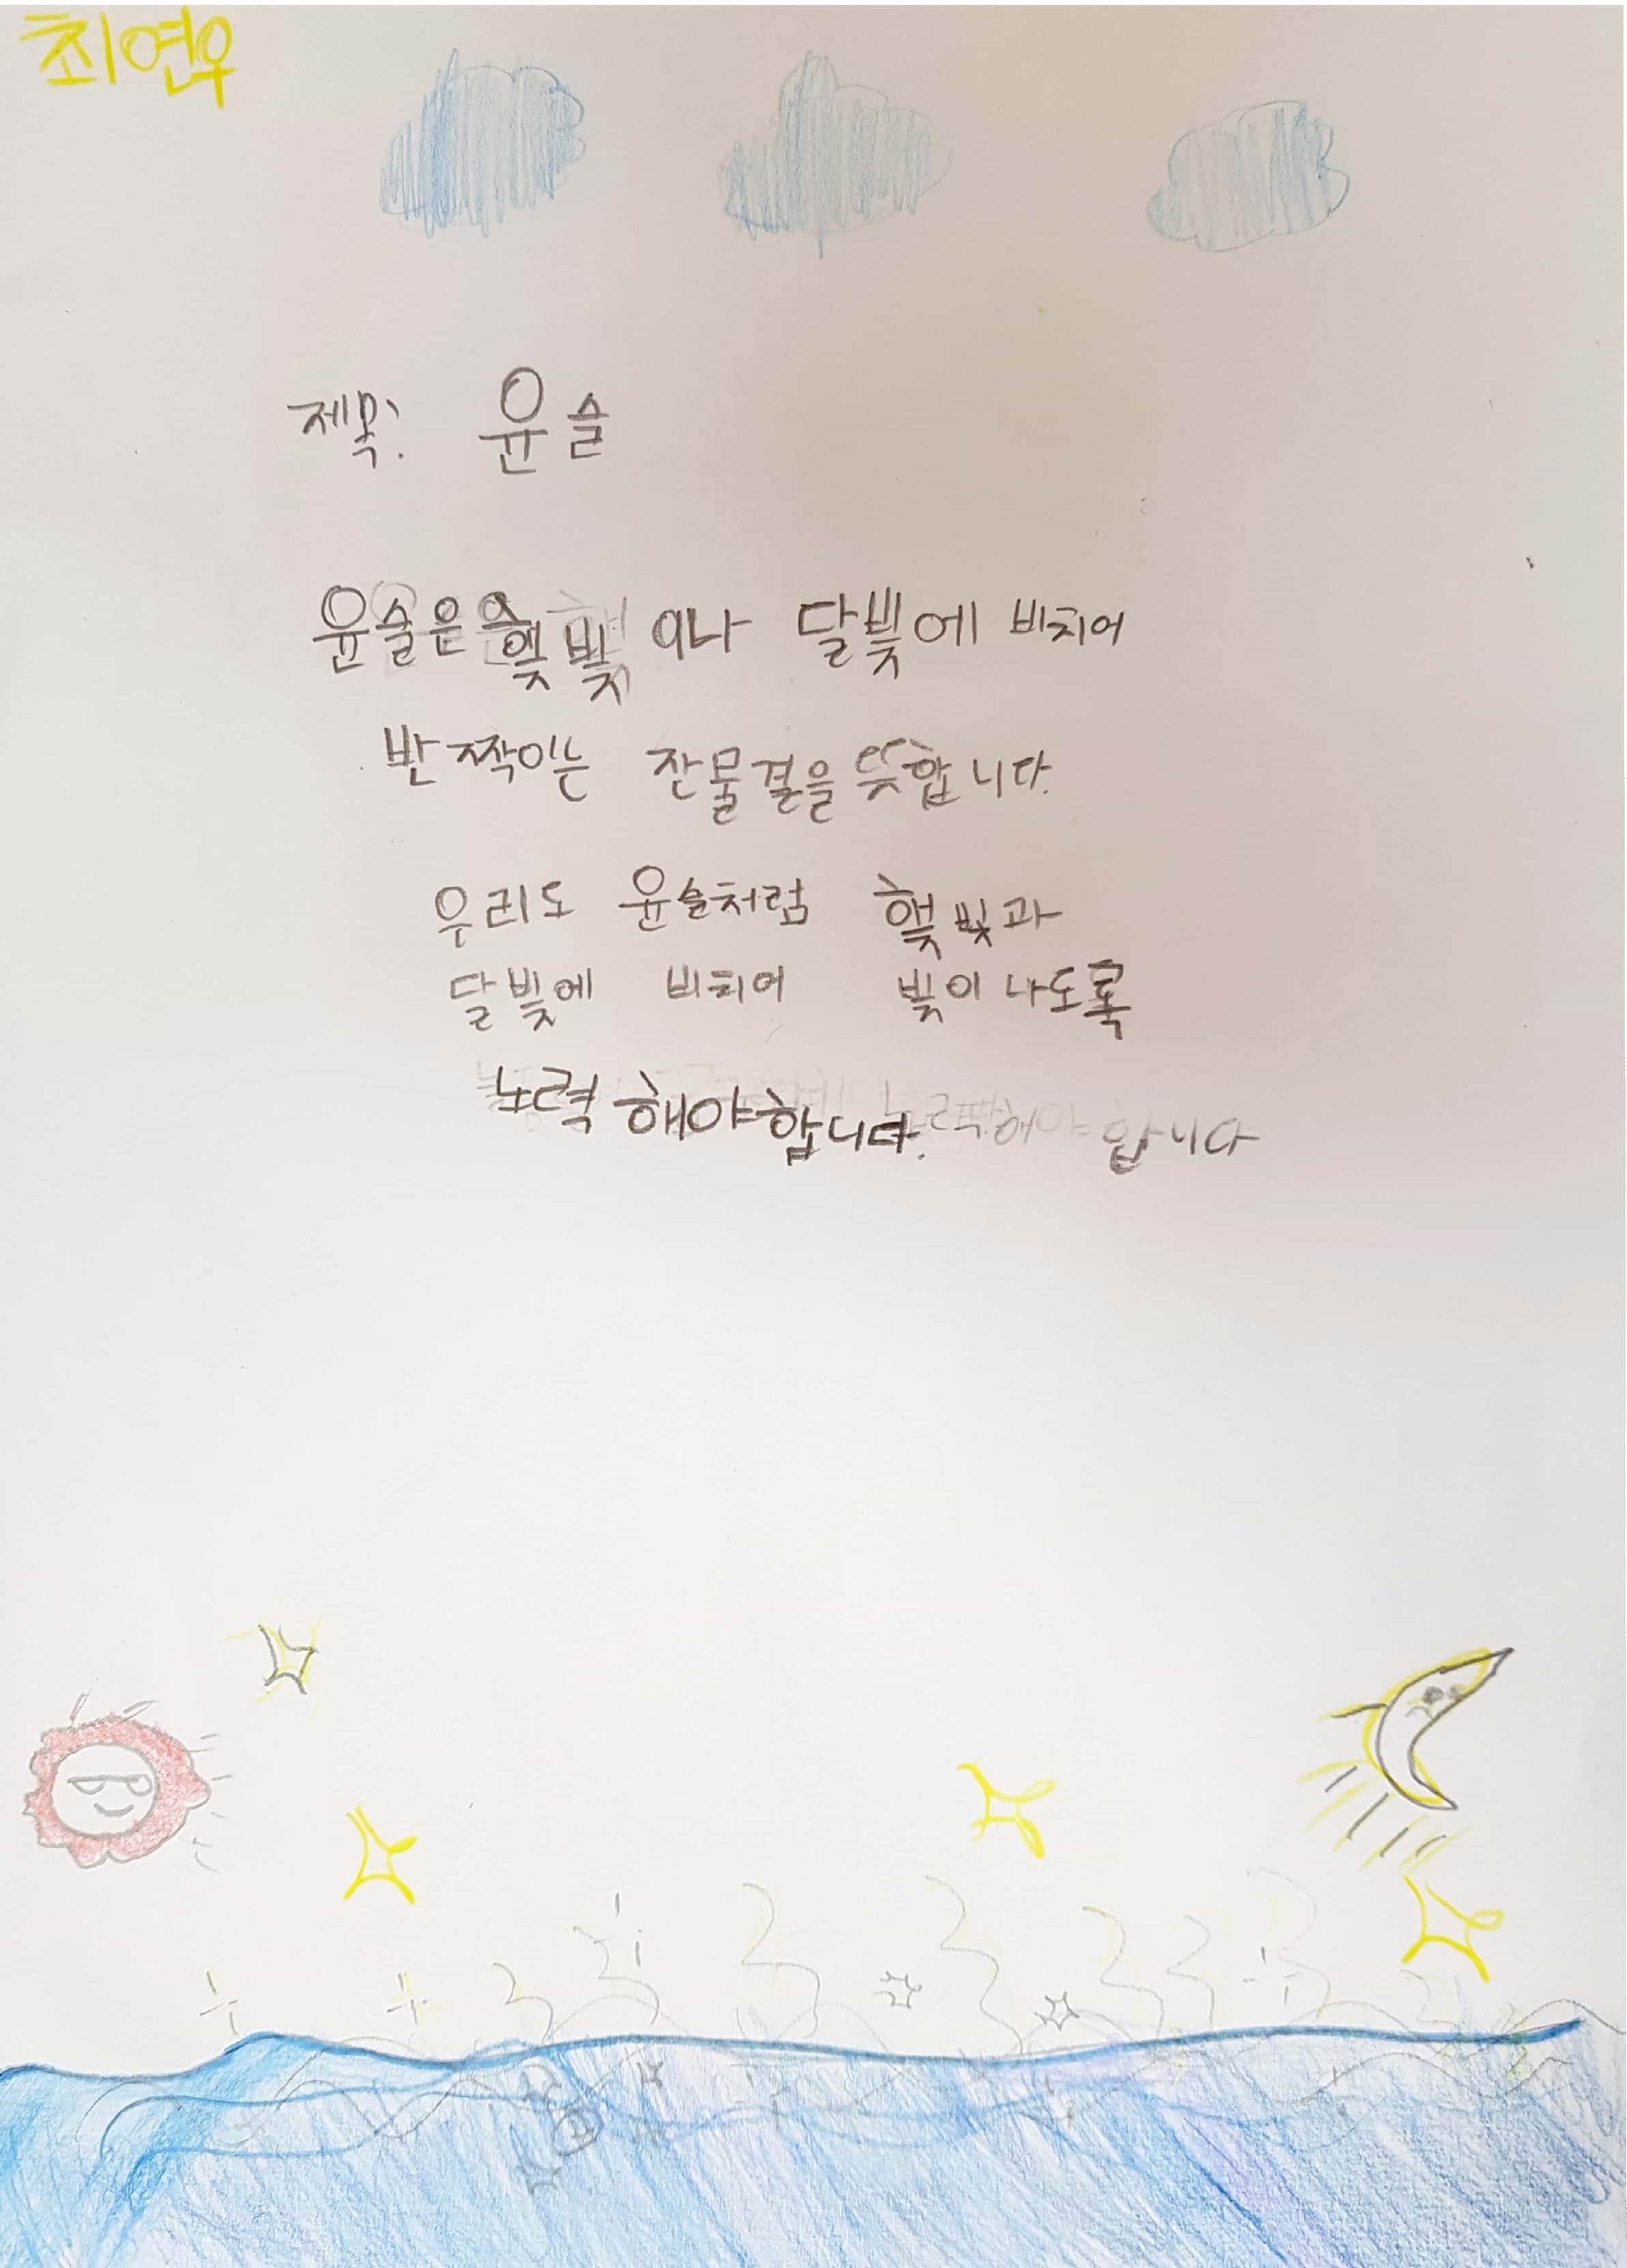 최연우
제목: 윤슬
윤슬은 햊빛이나 달빛에 비치어
반짝이는 잔물결을 뜻합니다.
우리도 윤슬처럼 햊빛과
달빛에 비치어 빛이 나도록
노력해야합니다. 합니다